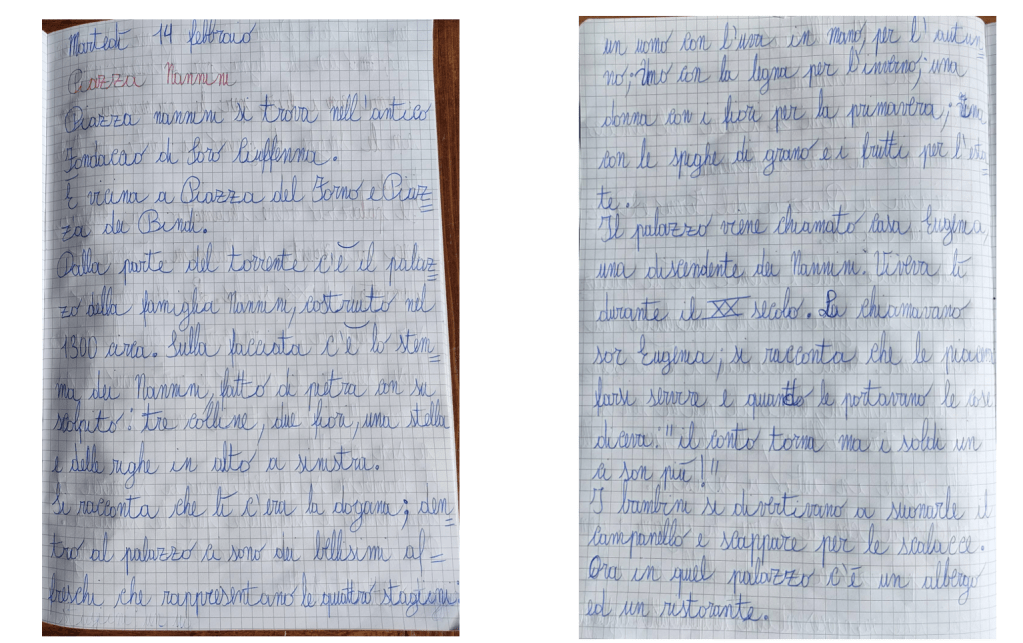 Martedì 14 febbraio
Piazza Nannini
Piazza nannini si trova nell'antico
Fondaccio di Loro Ciuffenna.
È vicina a Piazza del Forno e Piaz=
za dei Bindi.
Dalla parte del torrente c'è il palaz=
zo della famiglia Nannini, costruito nel
1300 circa. Sulla facciata c'è lo stem=
ma dei Nannini, fatto di pietra con su
scolpito: tre colline, due fiori, una stella
e delle righe in alto a sinistra.
Si racconta che lì c'era la dogana; den=
tro al palazzo ci sono dei bellissimi af=
freschi che rappresentano le quattro stagioni:
un uomo con l'uva in mano, per l'autun=
no; Uno con la legna per l'inverno; una
donna con i fiori per la primavera; Una
con le spighe di grano e i frutti per l'esta
te.
Il palazzo viene chiamato casa Eugenia,
una discendente dei Nannini. Viveva lì
durante il XX secolo. La chiamavano
sor Eugenia; si racconta che le piaceva
farsi servire e quando le portavano le cose
diceva: "il conto torna ma i soldi un
ci son più!"
I bambini si divertivano a suonarle il
campanello e scappare per le scalacce.
Ora in quel palazzo c'è un albergo
ed un ristorante.